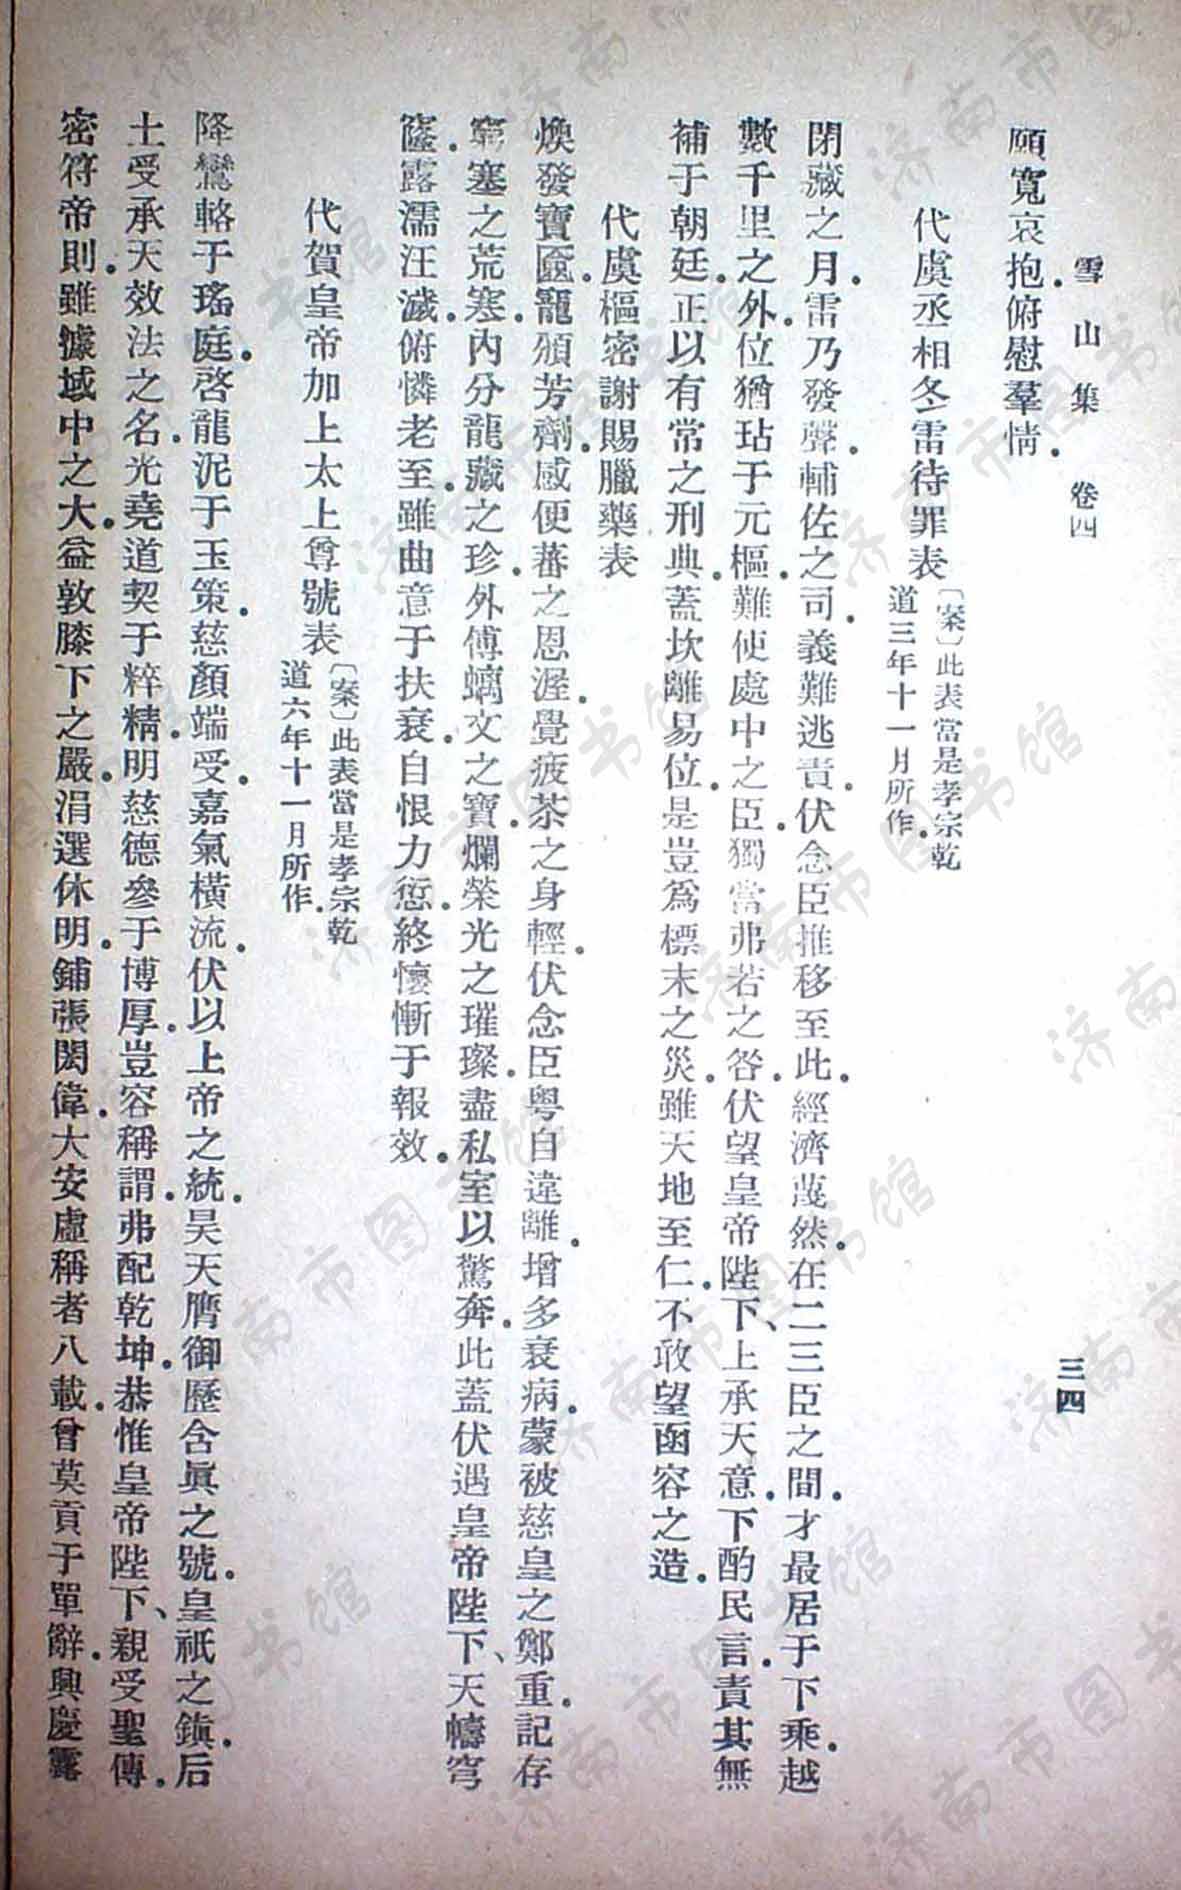 雪山集 卷四 三四
願寬哀抱.俯慰羣情.
代虞丞相冬雷待罪表〔案〕此表當是孝宗乾
道三年十一月所作.
閉藏之月.雷乃發聲.輔佐之司.義難逃責.伏念臣推移至此.經濟蔑然.在二三臣之間.才最居于下乘.越
數千里之外.位猶玷于元樞.難使處中之臣.獨當弗若之咎.伏望皇帝陛下、上承天意.下酌民言.責其無
補于朝廷.正以有常之刑典.蓋坎離易位.是豈爲標末之災.雖天地至仁.不敢望函容之造.
代虞樞密謝賜臘藥表
煥發寶匳.寵頒芳劑.感便蕃之恩渥.覺疲苶之身輕.伏念臣粤自違離.增多衰病.蒙被慈皇之鄭重.記存
窮塞之荒寒.內分龍藏之珍.外傅螭文之寶.爛榮光之璀璨.盡私室以驚奔.此蓋伏遇皇帝陛下、天幬穹
窿.露濡汪濊.俯憐老至.雖曲意于扶衰.自恨力愆.終懷慚于報效.
代賀皇帝加上太上尊號表〔案〕此表當是孝宗乾
道六年十一月所作.
降鸞輅于瑤庭.啓龍泥于玉策.慈顏端受.嘉氣橫流.伏以上帝之統.昊天膺御歷含眞之號.皇祇之鎮.后
土受承天效法之名.光堯道契于粹精.明慈德參于博厚.豈容稱謂.弗配乾坤.恭惟皇帝陛下、親受聖傳.
密符帝則.雖據域中之大.益敦膝下之嚴.涓選休明.鋪張閎偉.大安虛稱者八載.曾莫貢于單辭.興慶露